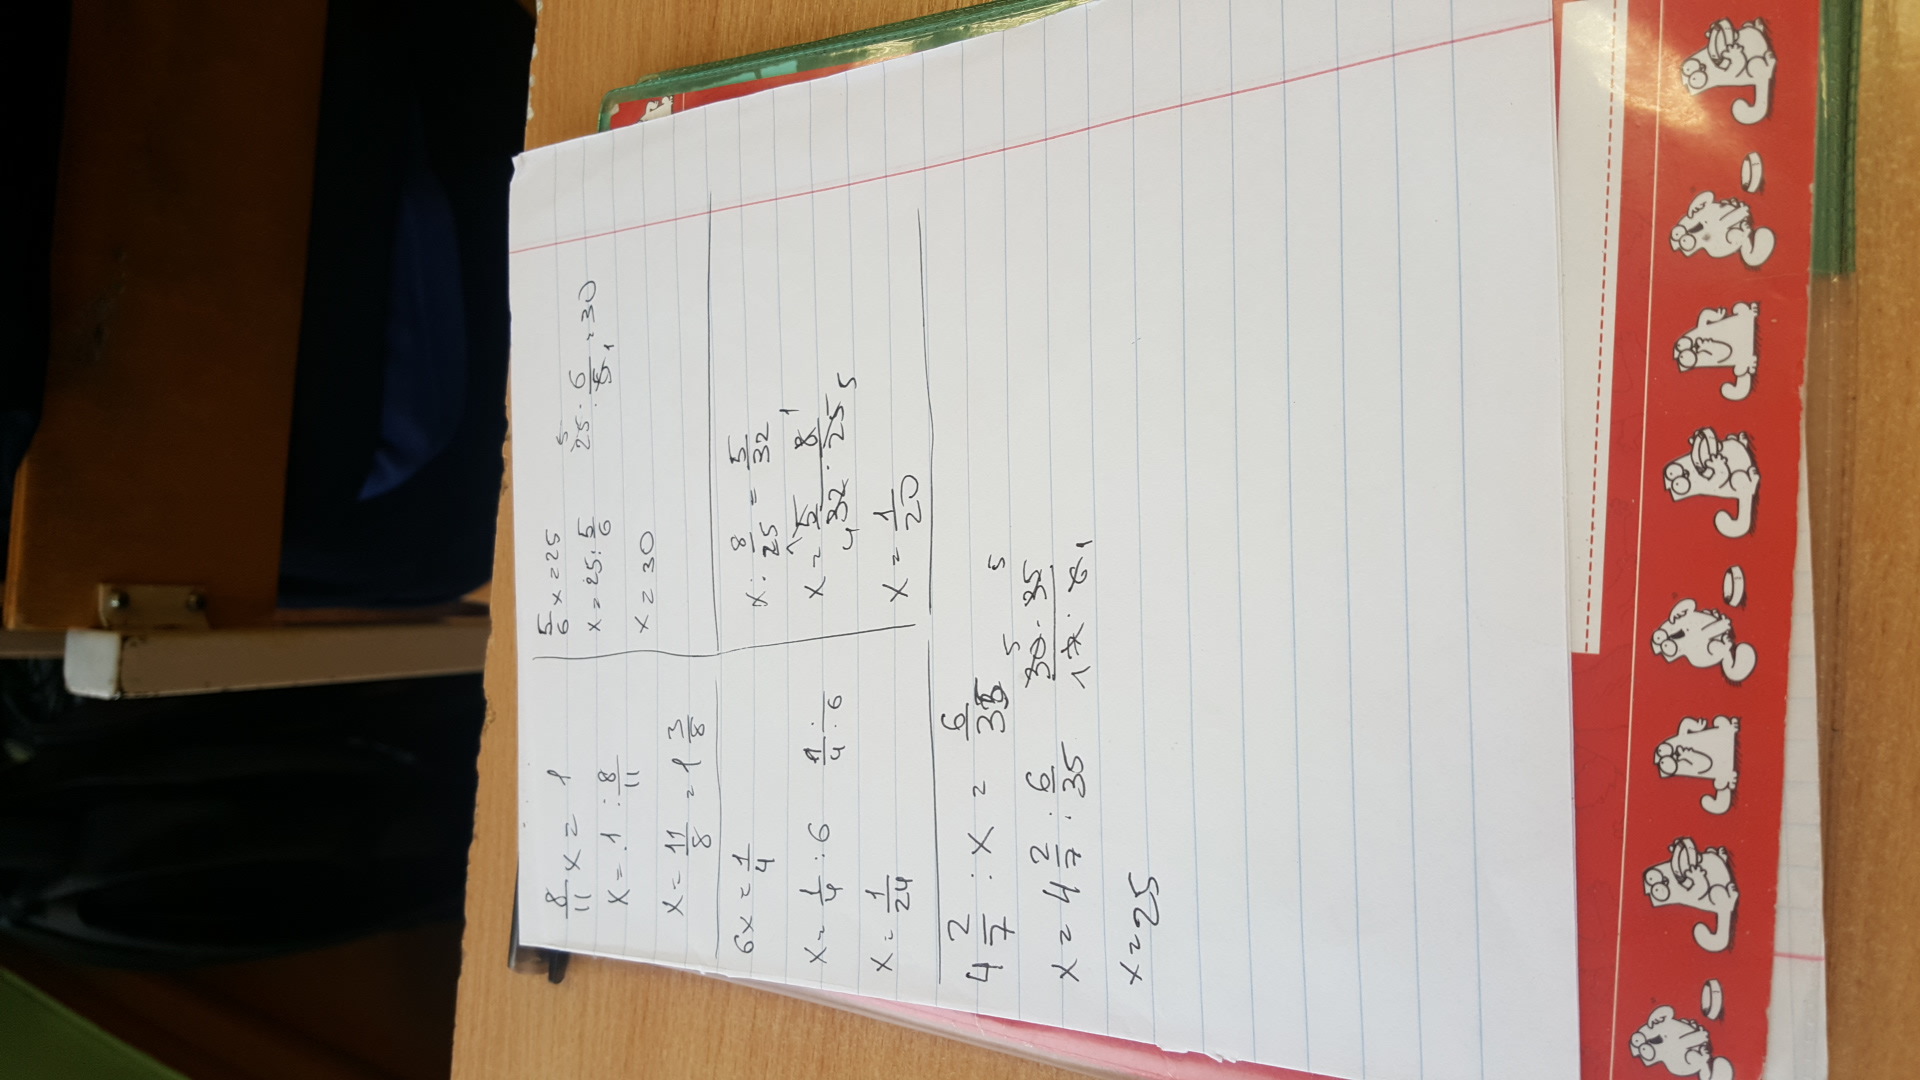 8/11 x = 1
x = 1 : 8/11
x = 11/8 = 1 3/8
5/6 x = 25
x = 25 : 5/6
25 · 6/5 = 30
5 1
x = 30
6x = 1/4
x = 1/4 : 6
1/4 · /6
x = 1/24
x : 8/25 = 5/32
x = 5 · 8 / 32 · 25
1 1 4 5
x = 1/20
4 2/7 : x = 6/35
x = 4 2/7 : 6/35
30 · 35 / 7 · 6
5 5 1 1
x = 25